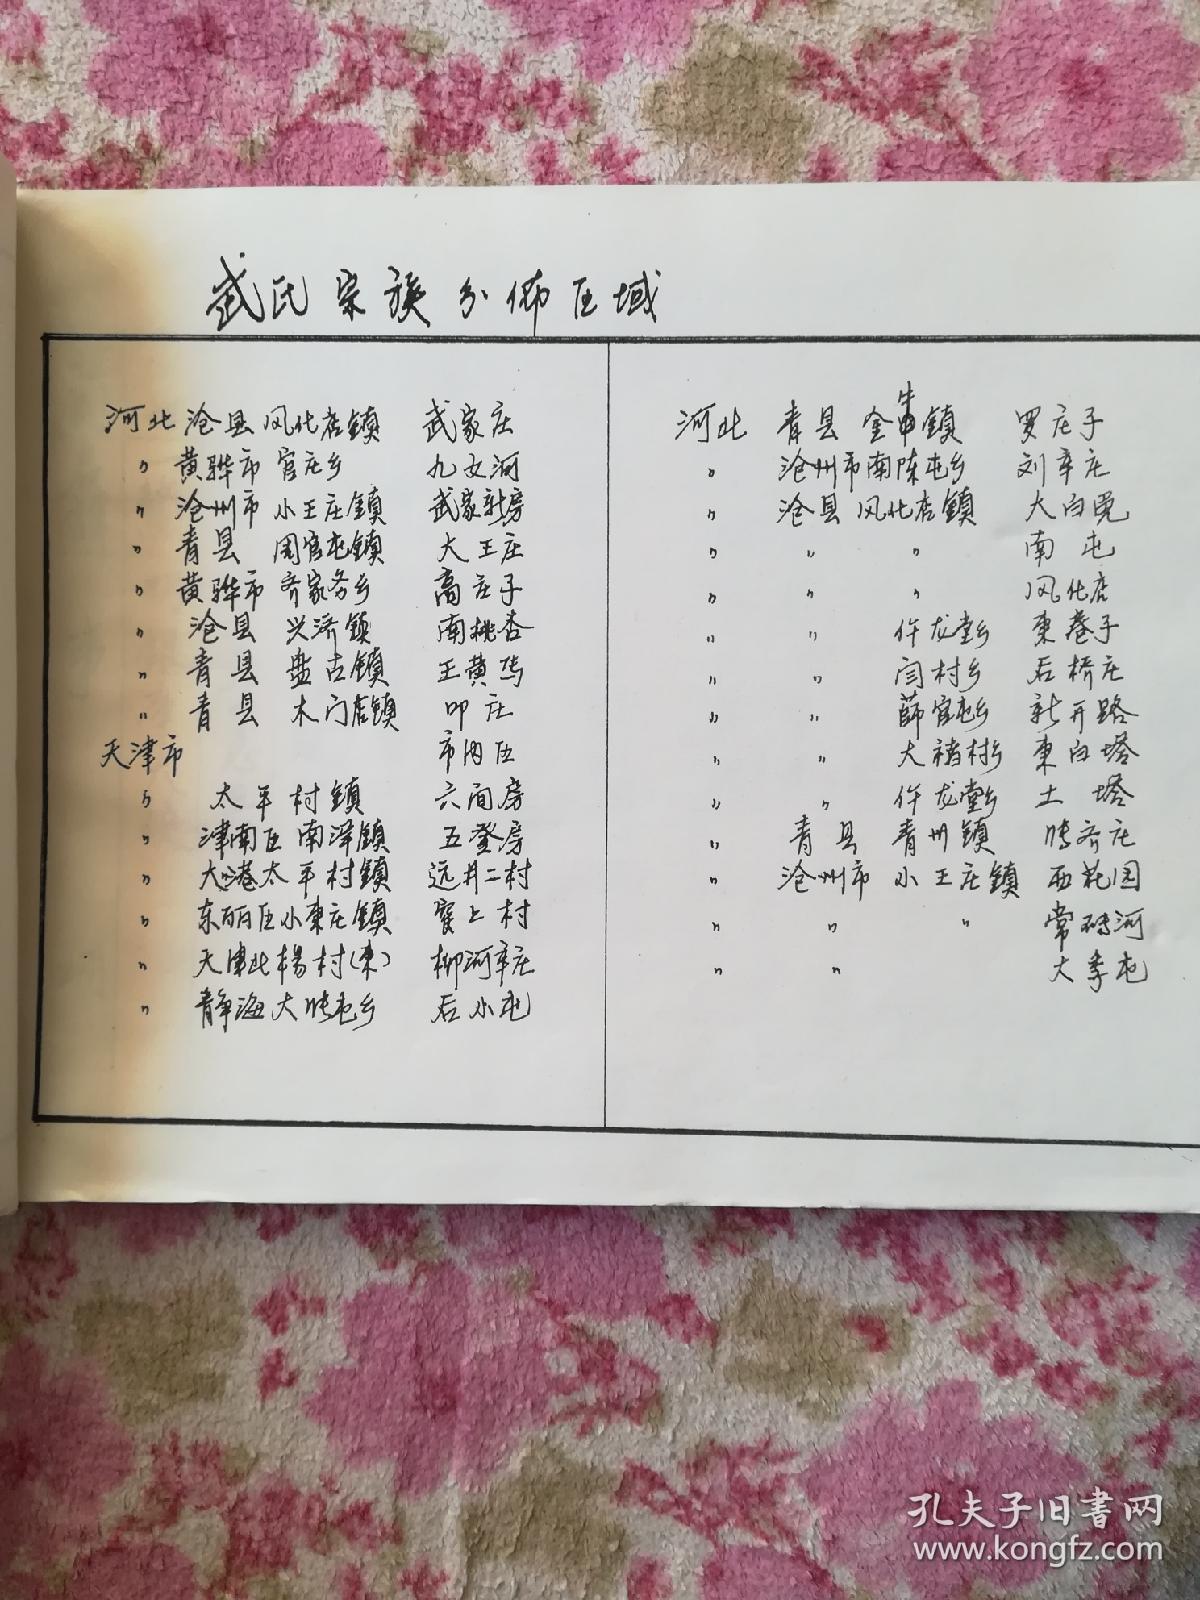 武氏宗族分佈区域
河北 沧县 风化店镇 武家庄
〃 黄骅市 官庄乡 九女河
〃 沧州市 小王庄镇 武家新房
〃 青县 周官屯镇 大王庄
〃 黄骅市 齐家务乡 高庄子
〃 沧县 兴济镇 南桃杏
〃 青县 盘古镇 王黄马
〃 青县 木门店镇 叩庄
天津市 市内区
〃 太平村镇 六间房
〃 津南区 南洋镇 五登房
〃 大港太平村镇 远井二村
〃 东丽区小東庄镇 窑上村
〃 天津北杨村(東) 柳河辛庄
〃 静海大张屯乡 后小屯
河北 青县 金牛镇 罗庄子
〃 沧州市南陈屯乡 刘辛庄
〃 沧县 风化店镇 大白冕
〃 〃 〃 南屯
〃 〃 〃 风化店
〃 〃 仵龙堂乡 東巷子
〃 〃 闫村乡 石桥庄
〃 〃 薛官屯乡 新开路
〃 〃 大褚村乡 東白塔
〃 〃 仵龙堂乡 土塔
〃 青县 青州镇 陈齐庄
〃 沧州市 小王庄镇 西花园
〃 〃 〃 常砖河
〃 〃 大李屯
孔夫子旧書网
www.kongfz.com